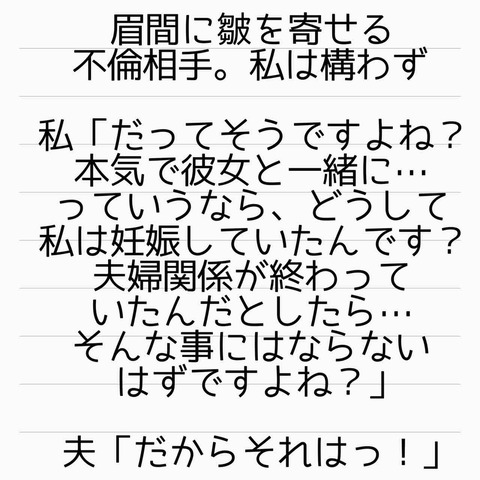 眉間に皺を寄せる
不倫相手。私は構わず
私「だってそうですよね？
本気で彼女と一緒に…
っていうなら、どうして
私は妊娠していたんです？
夫婦関係が終わって
いたんだとしたら…
そんな事にはならない
はずですよね？」
夫「だからそれはっ！」